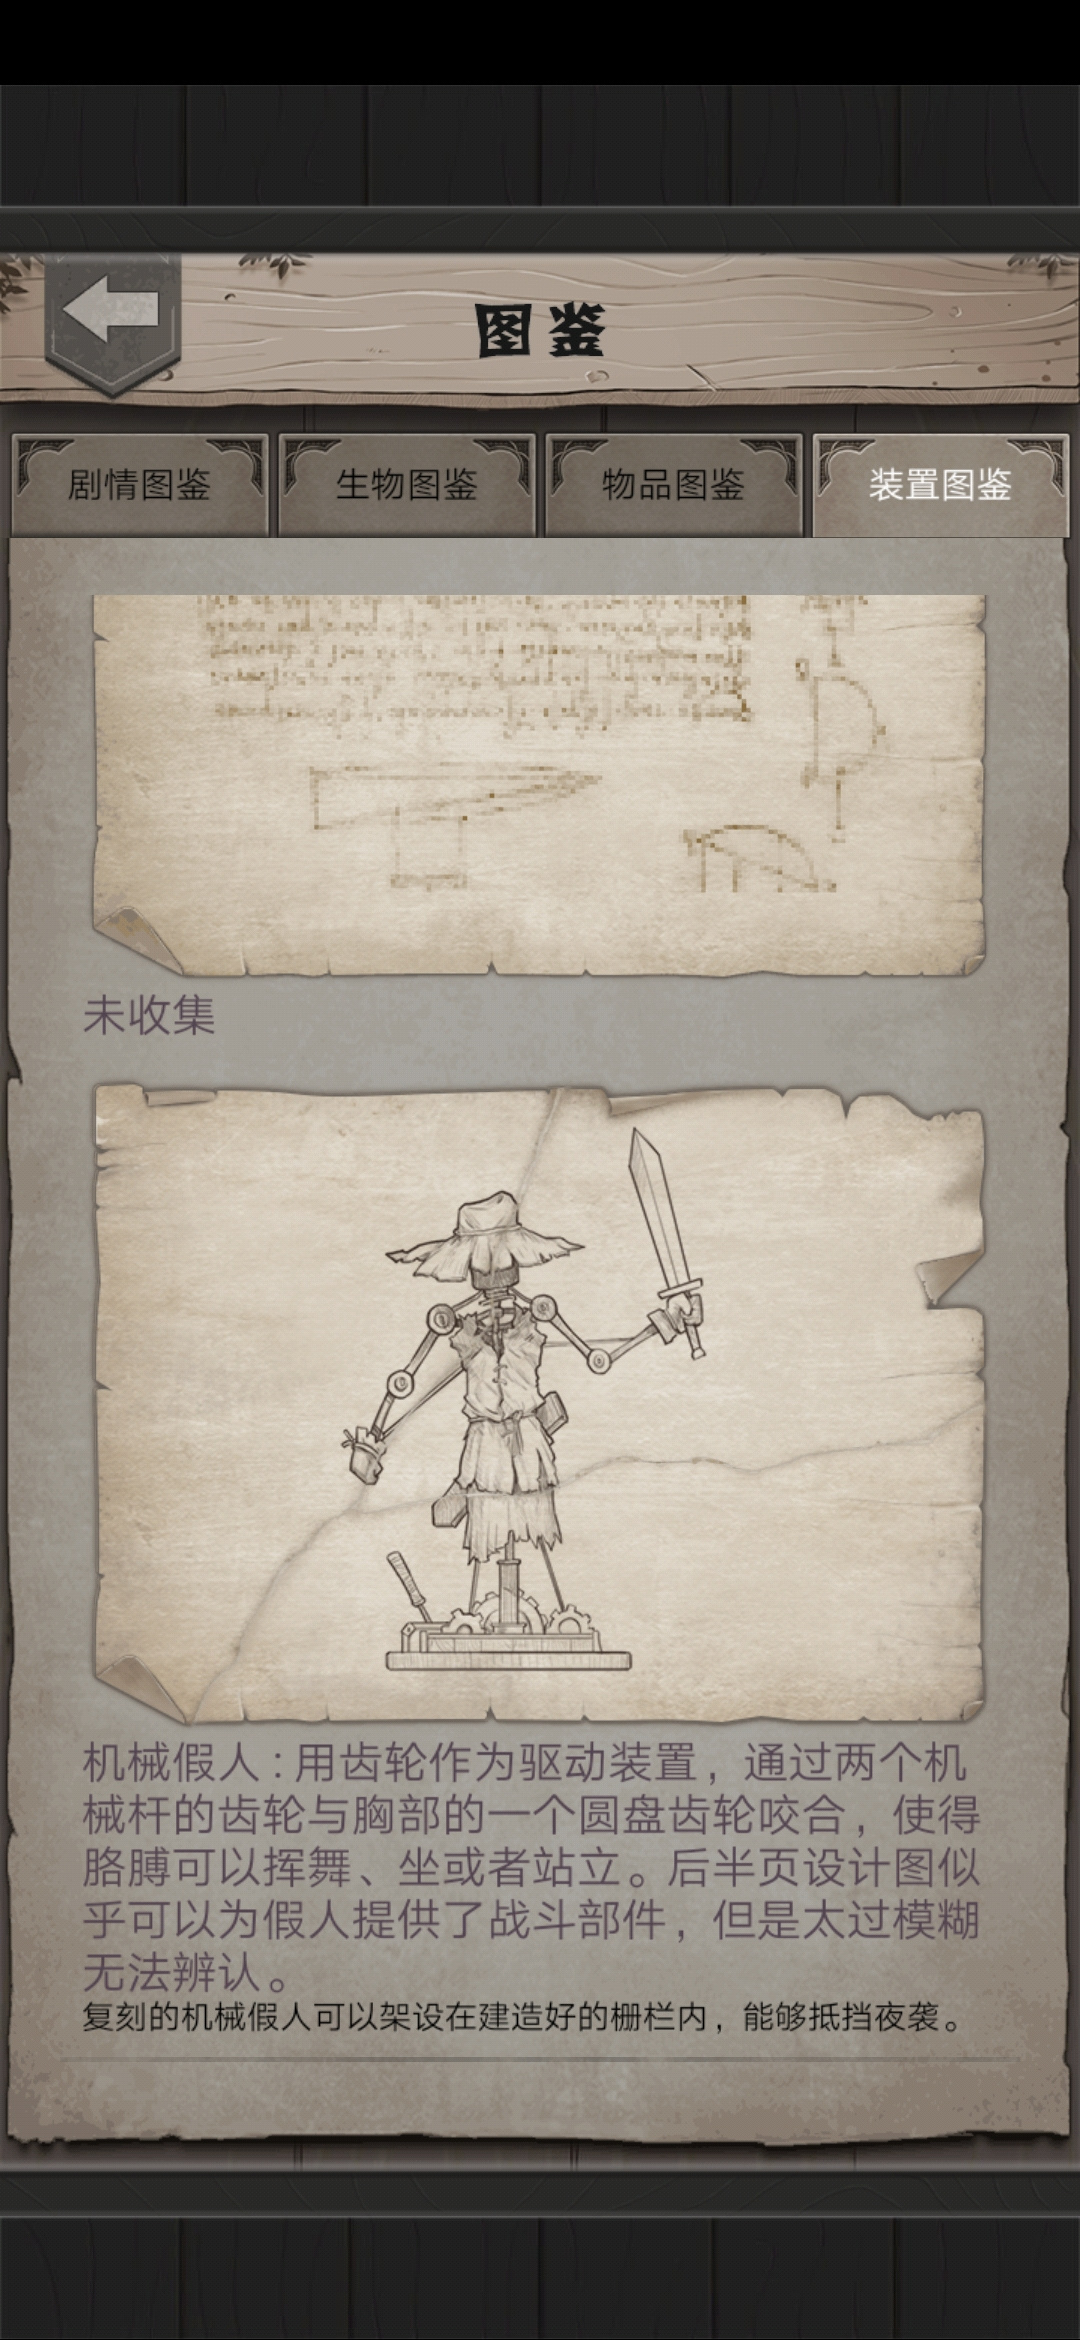 图鉴
剧情图鉴
生物图鉴
物品图鉴
装置图鉴
未收集
机械假人：用齿轮作为驱动装置，通过两个机
械杆的齿轮与胸部的一个圆盘齿轮咬合，使得
胳膊可以挥舞、坐或者站立。后半页设计图似
乎可以为假人提供了战斗部件，但是太过模糊
无法辨认。
复刻的机械假人可以架设在建造好的栅栏内，能够抵挡夜袭。